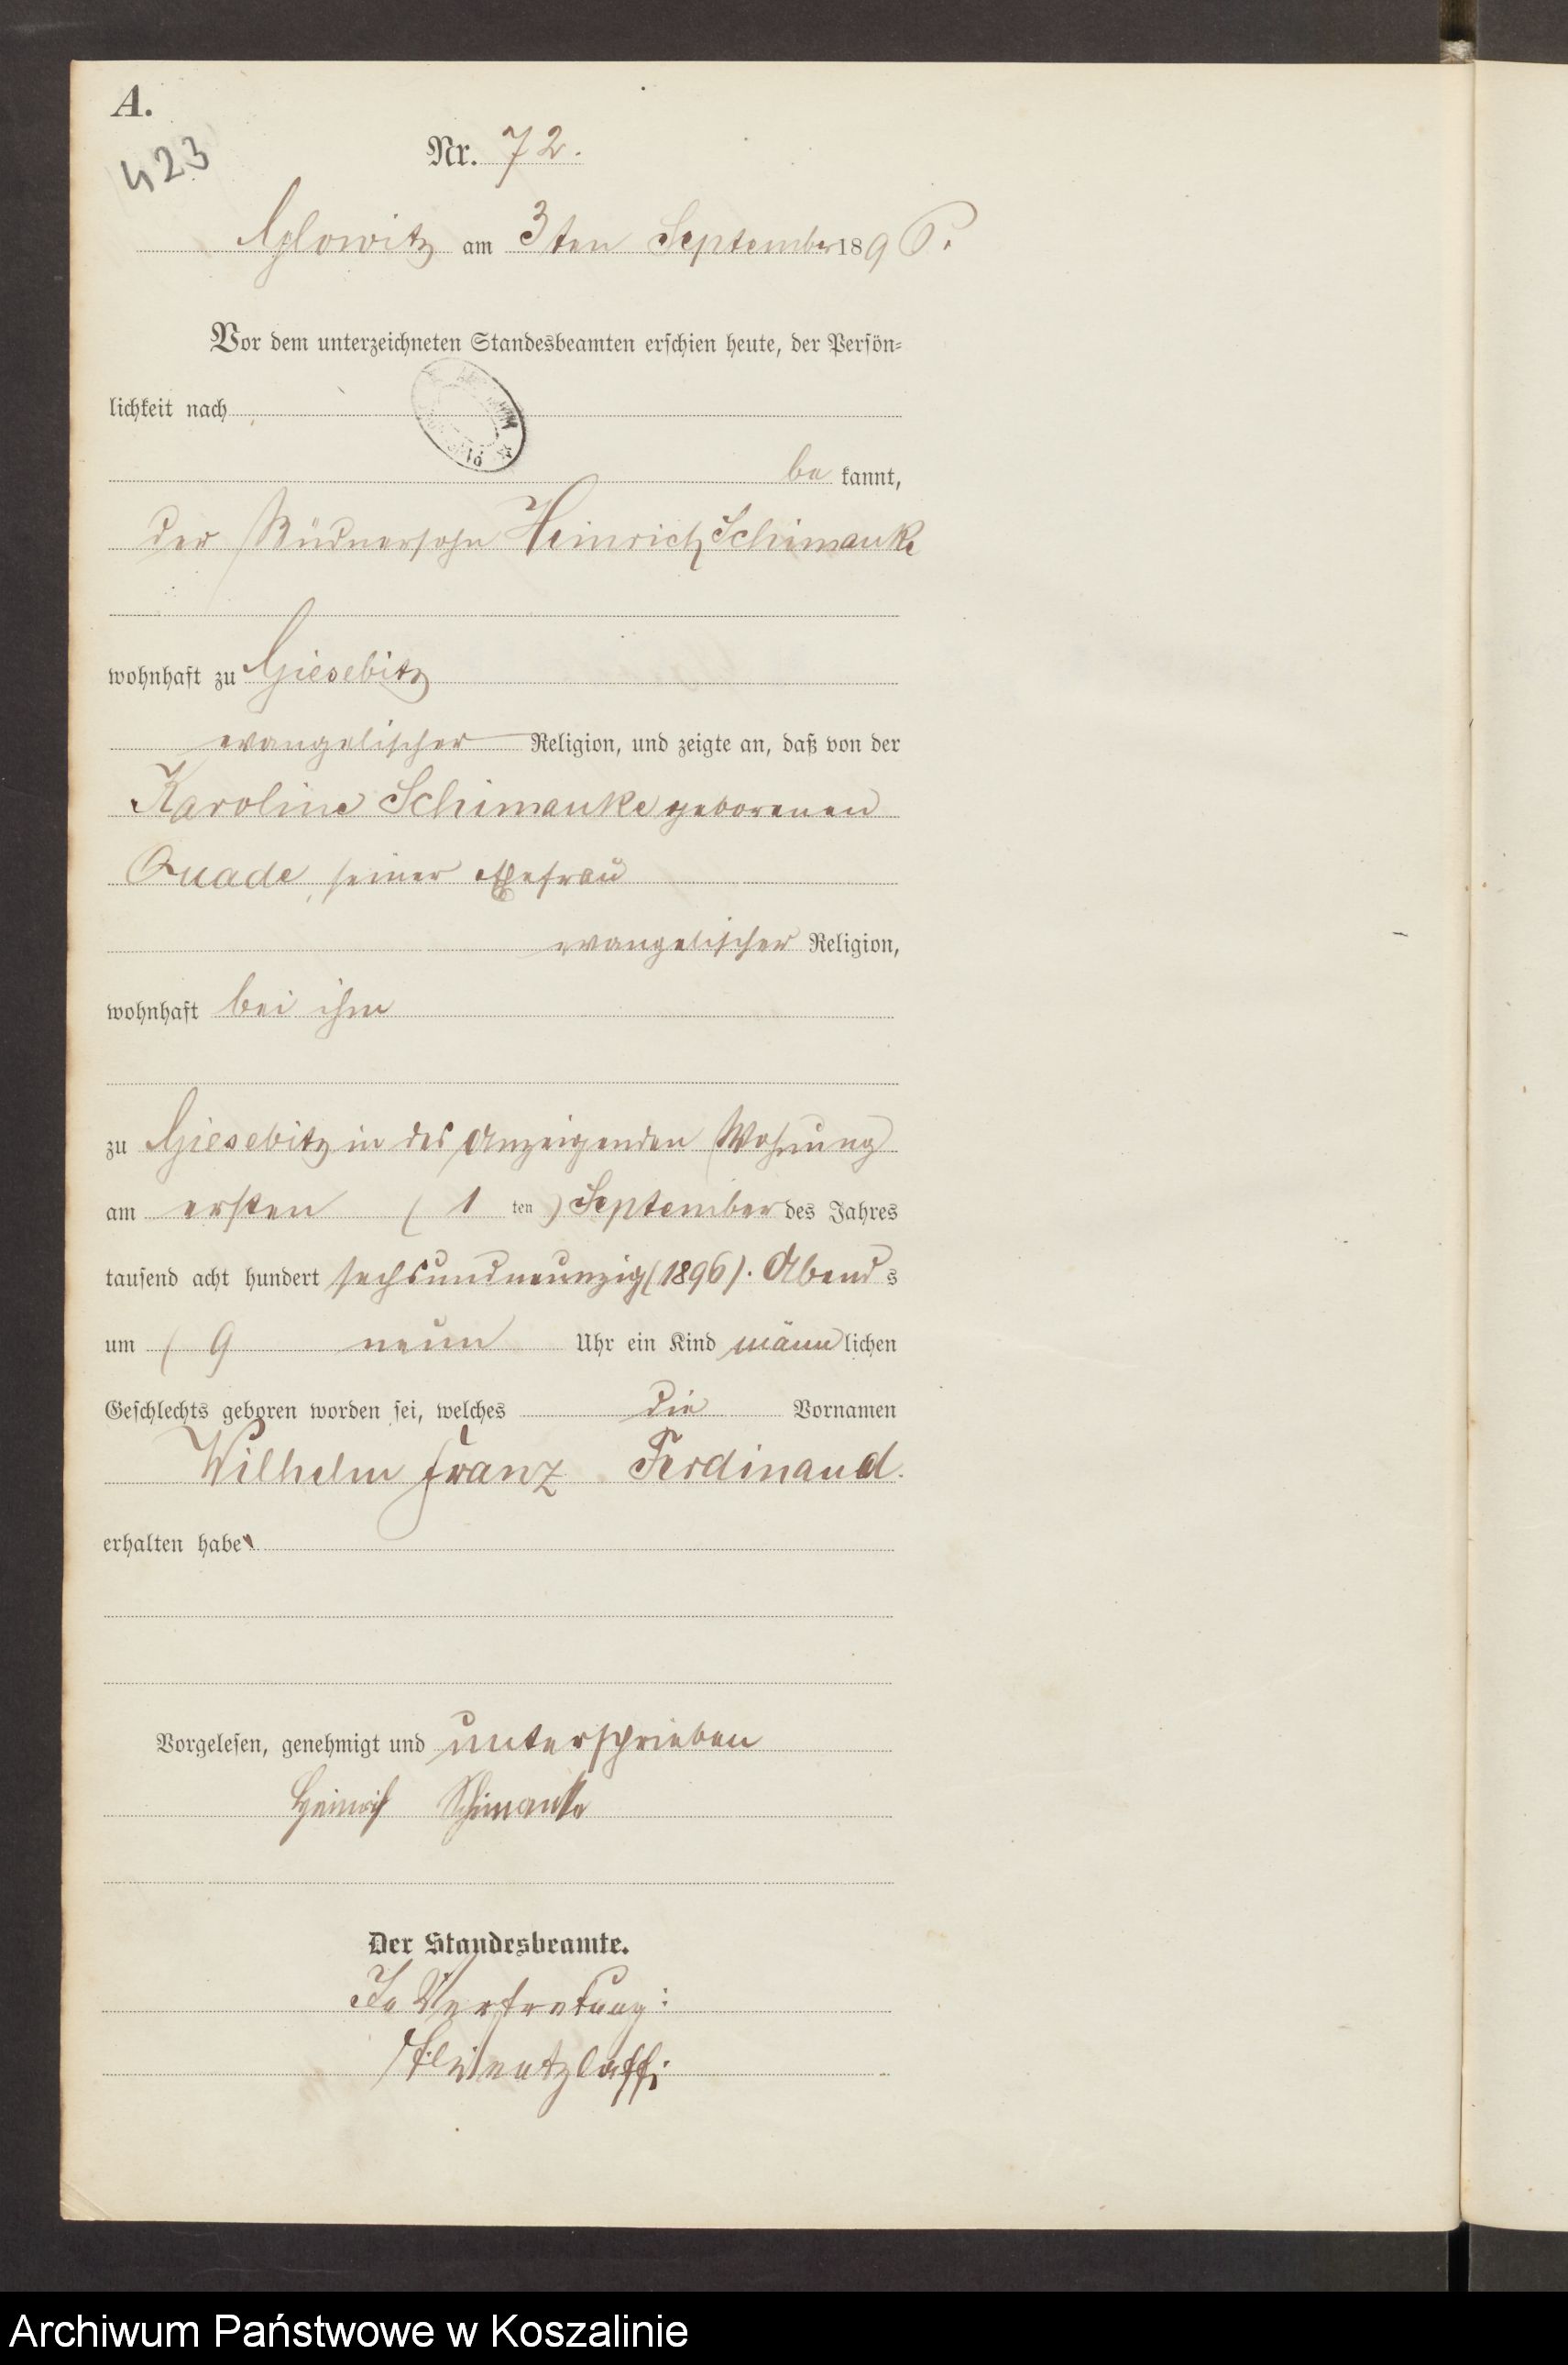 A.
423
Nr. 72.
Glowitz am 3ten September 1896.
Vor dem unterzeichneten Standesbeamten erschien heute, der Persön-
lichkeit nach
be kannt,
der Büdnersohn Heinrich Schimanke
wohnhaft zu Giesebitz
evangelischer Religion, und zeigte an, daß von der
Karoline Schimanke geborenen
Quade, seiner Ehefrau
evangelischer Religion,
wohnhaft bei ihm
zu Giesebitz in des Anzeigenden Wohnung
am ersten (1 ten) September des Jahres
tausend acht hundert sechsundneunzig (1896). Abend s
um (9 neun Uhr ein Kind männ lichen
Geschlechts geboren worden sei, welches die Vornamen
Wilhelm Franz Ferdinand.
erhalten habe
Vorgelesen, genehmigt und unterschrieben
Heinrich Schimanke
Der Standesbeamte.
In Vertretung:
Archiwum Państwowe w Koszalinie